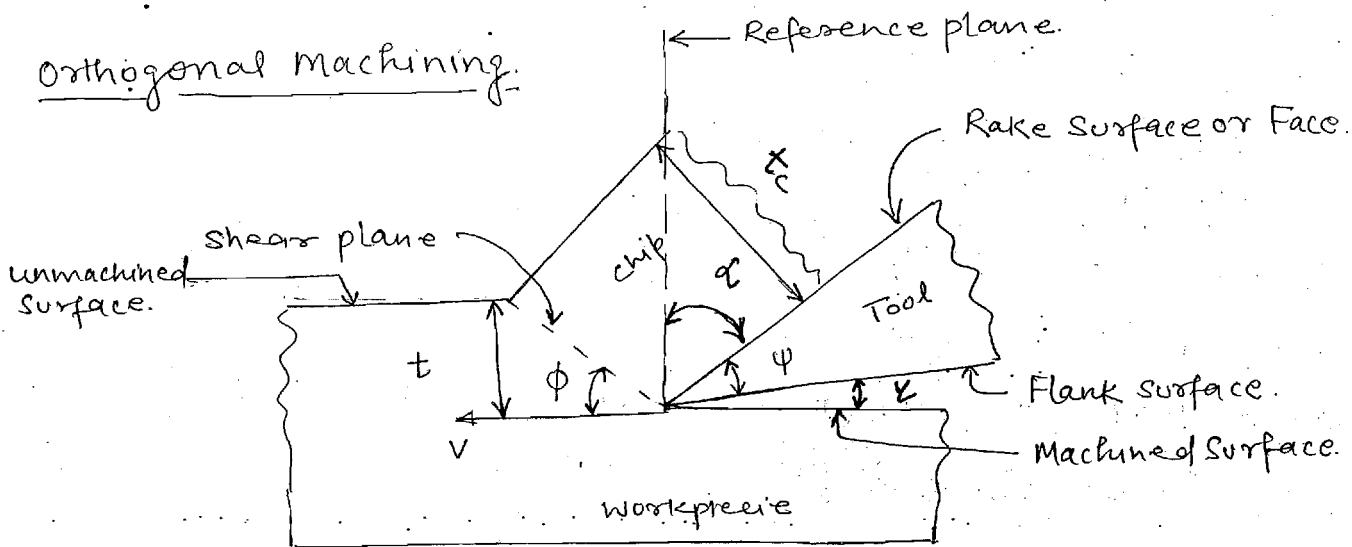 Reference plane.
Orthogonal Machining.
Rake Surface or Face.
shear plane
unmachined
surface.
chip
tc
α
Tool
t
φ
ψ
γ
Flank surface.
V
Machined Surface.
workpiecie